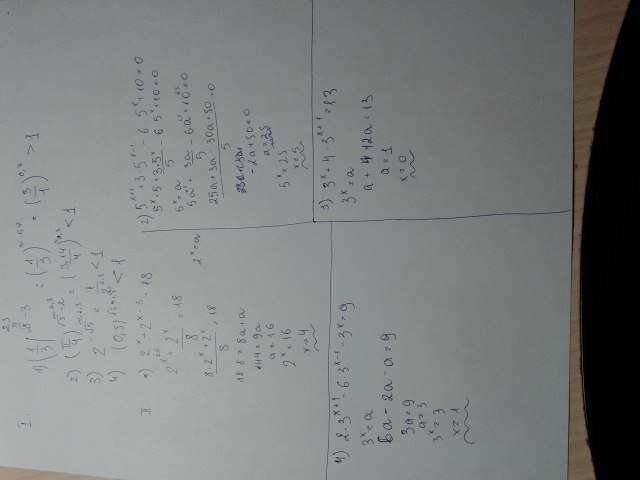 I.
1) (1/3)^√5-3 = (1/3)^-0,7 = (3/1)^0,7 > 1
2) (π/4)^√5-2 = (3,14/4)^0,3 < 1
3) 2^-√5 = < 1
4) (0,5) < 1
II
1) 2^x + 2^x-3 = 18
2^x + 2^x/8 = 18
8·2^x + 2^x/8 = 18
2^x = a
18·8 = 8a + a
144 = 9a
a = 16
2^x = 16
x = 4
2) 5^x+1 + 3·5^x-1 - 6·5^x + 10 = 0
5^x·5 + 3·5^x/5 - 6·5^x + 10 = 0
5^x = a
5a + 3a/5 - 6a + 10 = 0
25a + 3a - 30a + 50 = 0
5
-2a + 50 = 0
a = 25
5^x = 25
3) 3^x + 4·3^x+1 = 13
3^x = a
a + 12a = 13
a = 1
x = 0
4) 2·3^x+1 - 6·3^x-1 - 3^x = 9
3^x = a
6a - 2a - a = 9
3a = 9
a = 3
3^x = 3
x = 1